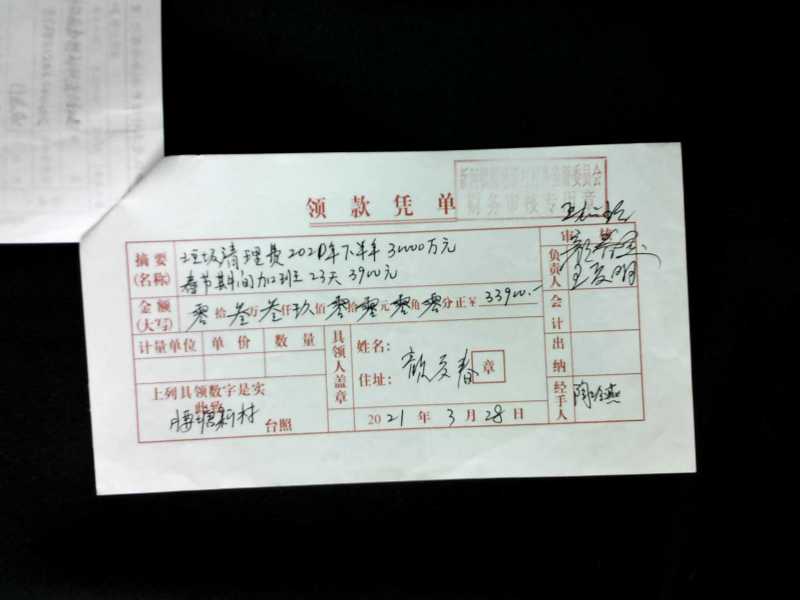 领款凭单
财务审核专用章
摘要 垃圾清理费2020年下半年30000万元
(名称) 春节期间加班23天3900元
审核
金额
(大写) 零拾叁万叁仟玖佰零拾零元零角零分正¥33900.-
负责人
王友明
会计
计量单位 单价 数量
具领人盖章
姓名:
住址:
章
出纳
上列具领数字是实
此致
腰塘新村 台照
2021年3月28日
经手人